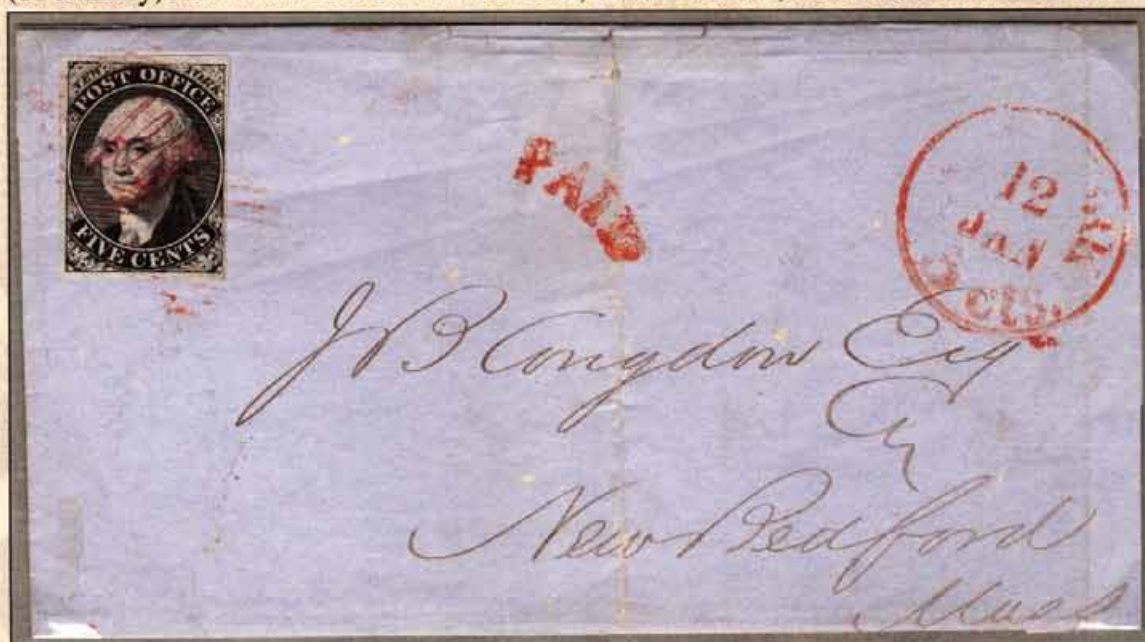 NEW YORK
POST OFFICE
FIVE CENTS
PAID
12
JAN
5 cts.
J B Congdon Esq
New Bedford
Mass